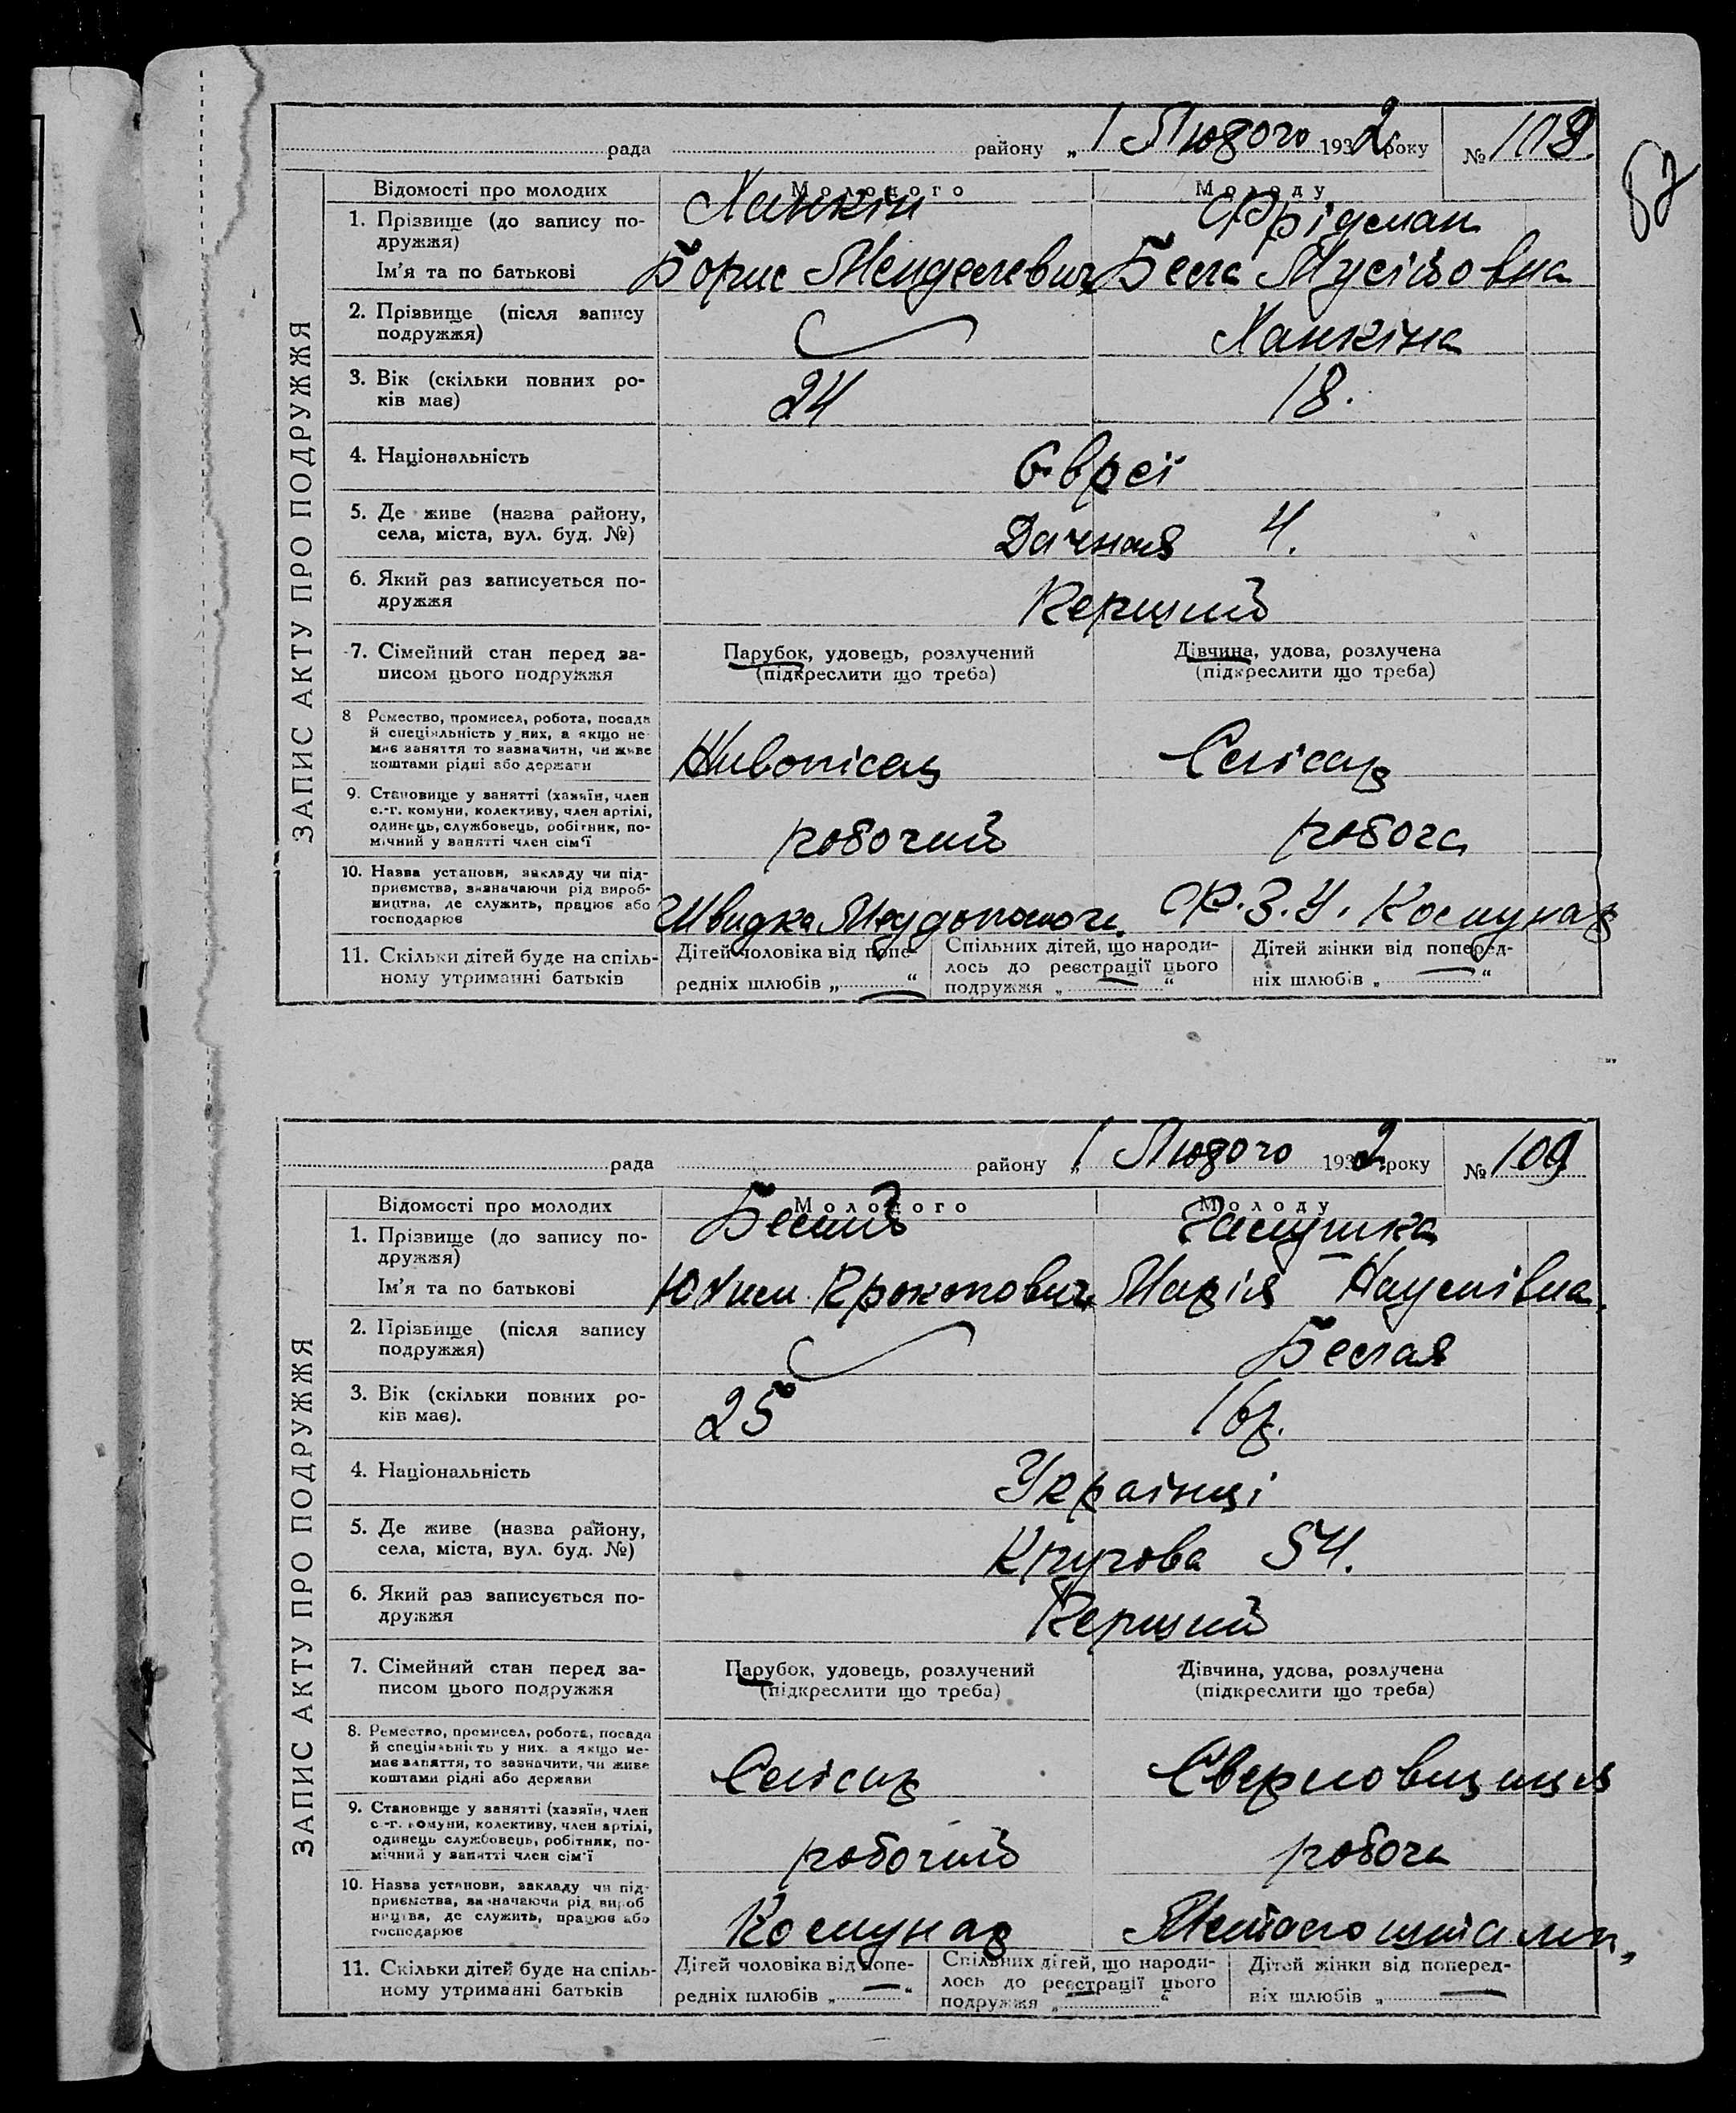 рада району „1 Лютого 1932 року № 108
57
ЗАПИС АКТУ ПРО ПОДРУЖЖЯ
Відомості про молодих Молодого Молоду
1. Прізвище (до запису по-
дружжя) Ханкін Фрідман
Ім'я та по батькові Борис Менделевич Бела Мусіївовна
2. Прізвище (після запису
подружжя) Ханкіна
3. Вік (скільки повних ро-
ків має) 24 18.
4. Національність Євреї
5. Де живе (назва району,
села, міста, вул. буд. №) Дачная 4.
6. Який раз записується по-
дружжя Перший
7. Сімейний стан перед за-
писом цього подружжя
Парубок, удовець, розлучений
(підкреслити що треба)
Дівчина, удова, розлучена
(підкреслити що треба)
8 Ремество, промисел, робота, посада
й спеціяльність у них, а якщо не
має заняття то зазначити, чи живе
коштами рідні або держави
Живопісец Слісар
9. Становище у занятті (хазяїн, член
с.-г. комуни, колективу, член артілі,
одинець, службовець, робітник, по-
мічний у занятті член сім'ї
робочий робоча
10. Назва установи, закладу чи під-
приємства, зазначаючи рід вироб-
ництва, де служить, працює або
господарює
Швидка Меддопомоч. Ф.З.У. Комунар
11. Скільки дітей буде на спіль-
ному утриманні батьків
Дітей чоловіка від попе-
редніх шлюбів „ — “
Спільних дітей, що народи-
лось до реєстрації цього
подружжя „ — “
Дітей жінки від поперед-
ніх шлюбів „ — “
рада району „1 Лютого 1932 року № 109
ЗАПИС АКТУ ПРО ПОДРУЖЖЯ
Відомості про молодих Молодого Молоду
1. Прізвище (до запису по-
дружжя) Белий
Ім'я та по батькові Юхим Марія Наумівна
2. Прізвище (після запису
подружжя) Белая
3. Вік (скільки повних ро-
ків має). 25 16р.
4. Національність Українці
5. Де живе (назва району,
села, міста, вул. буд. №) 54.
6. Який раз записується по-
дружжя Перший
7. Сімейний стан перед за-
писом цього подружжя
Парубок, удовець, розлучений
(підкреслити що треба)
Дівчина, удова, розлучена
(підкреслити що треба)
8. Ремество, промисел, робота, посада
й спеціяльність у них. а якщо не-
має заняття, то зазначити, чи живе
коштами рідні або держави
Слісар Сверловщиця
9. Становище у занятті (хазяїн, член
с.-г. комуни, колективу, член артілі,
одинець службовець, робітник, по-
мічний у занятті член сім'ї
робочий робоча
10. Назва установи, закладу чи під-
приємства, зазначаючи рід вироб
ництва, де служить, працює або
господарює
Комунар
11. Скільки дітей буде на спіль-
ному утриманні батьків
Дітей чоловіка від попе-
редніх шлюбів „ — “
Спільних дітей, що народи-
лось до реєстрації цього
подружжя „ “
Дітей жінки від поперед-
ніх шлюбів „ — “